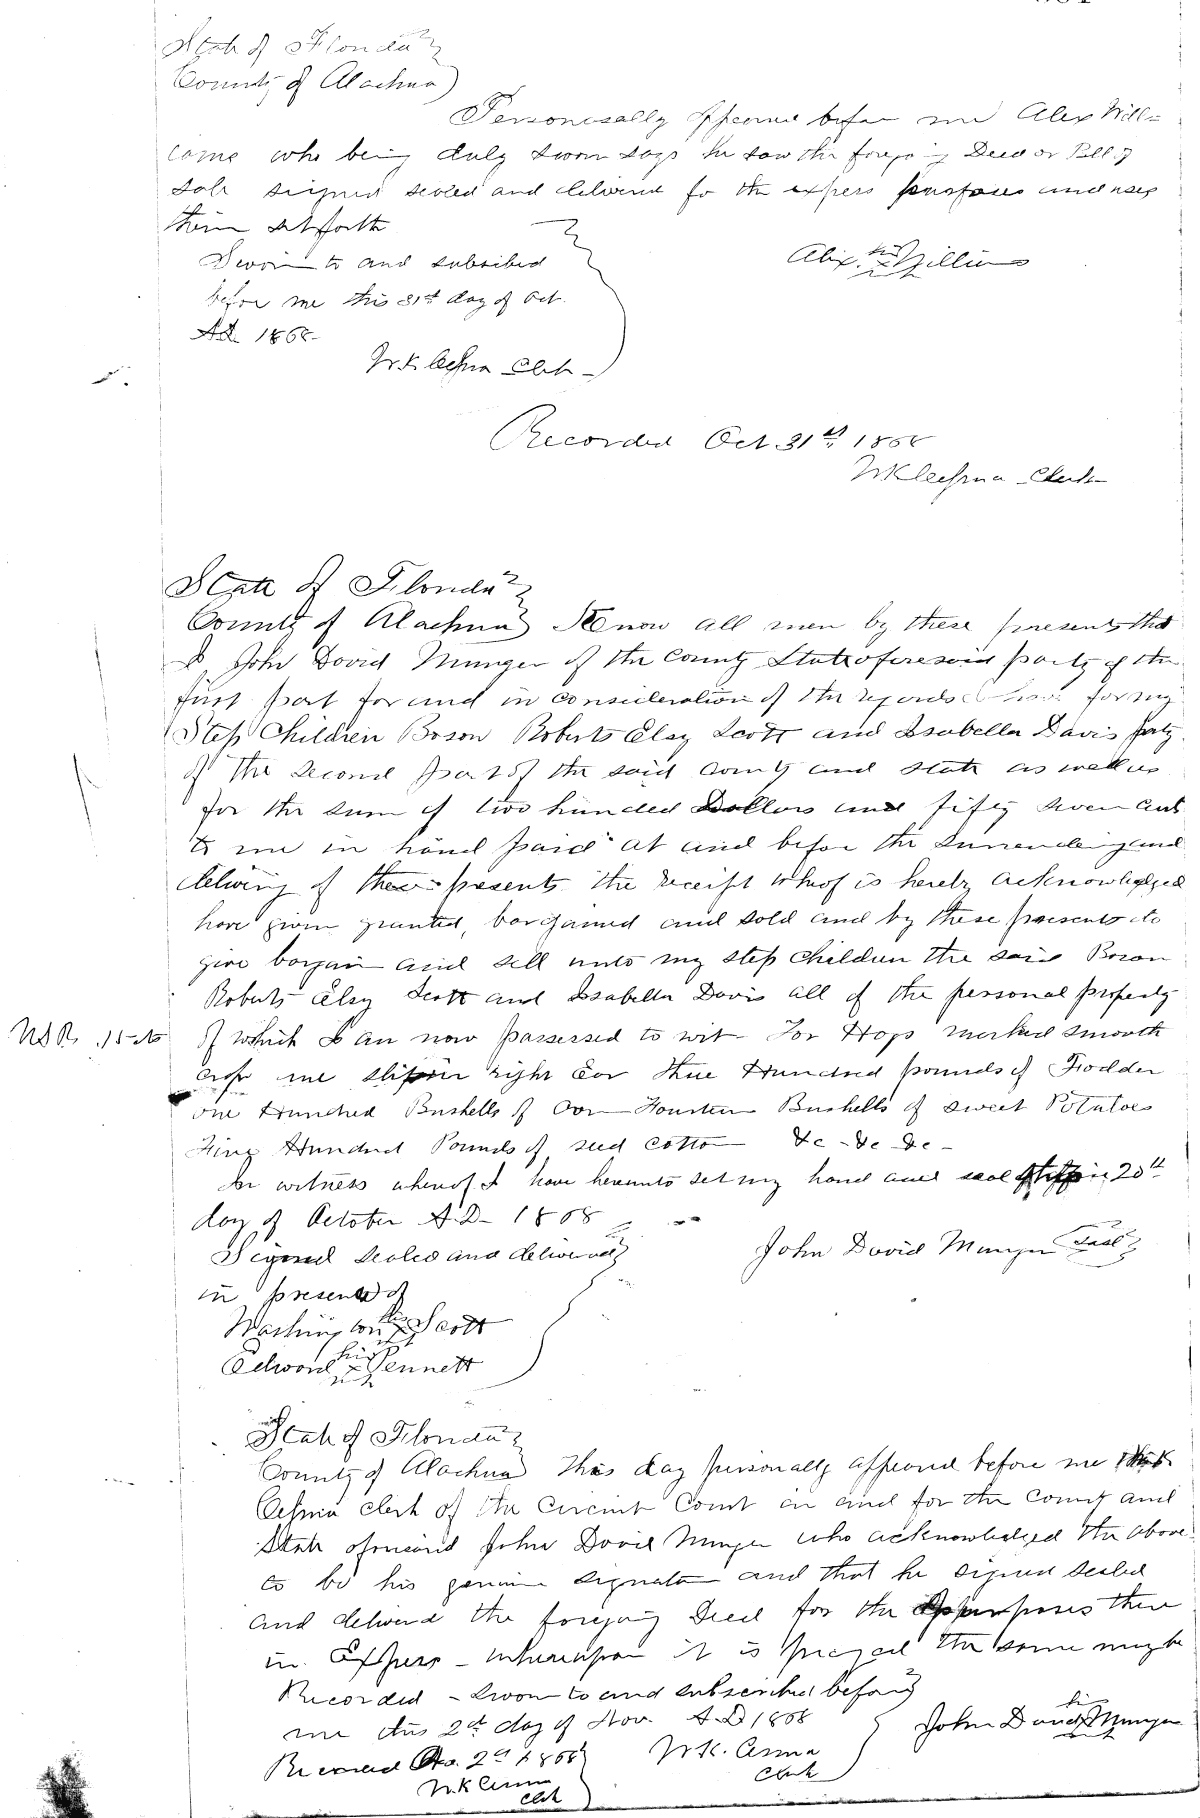 State of Florida
County of Alachua
Personally appeared before me Alex Will-
iams who being duly sworn says he saw the foregoing Deed or Bill of
Sale signed sealed and delivered for the express purposes and uses
therein set forth
Sworn to and subscribed
before me this 31st day of Oct.
AD 1868
Alex his x Williams
W.K. Cessna Clerk
Recorded Oct 31st 1868
W K Cessna Clerk
State of Florida
County of Alachua Know all men by these presents that
I John David Munger of the County State aforesaid party of the
first part for and in consideration of the regards I have for my
Step Children Boson Roberts Elsy Scott and Isabella Davis party
of the second part of the said county and state as well as
for the sum of two hundred Dollars and fifty seven cents
to me in hand paid at and before the surrendering and
delivery of these presents the receipt whof is hereby acknowledged
have given granted, bargained and sold and by these presents do
give bargain and sell unto my step children the said Boson
Roberts Elsy Scott and Isabella Davis all of the personal property
USR 15 cts
of which I am now possessed to wit Hogs marked smooth
crop one right Ear three Hundred pounds of Fodder
one Hundred Bushells of Corn Bushells of Sweet Potatoes
Hundred Pounds of seed cotton &c - &c &c -
In witness whereof I have hereunto set my hand and seal this 20th
day of October A.D. 1868
Signed sealed and delivered
John David Munger Seal
in presents of
Washington his x Scott
Edward his x Pennett
State of Florida
County of Alachua This day personally appeared before me W K
Cessna clerk of the Circuit Court in and for the County and
State aforesaid John David Munger who acknowledged the above
to be his genuine signature and that he signed sealed
and delivered the foregoing Deed for the purposes there
in Express - whereupon it is prayed the same might be
Recorded - Sworn to and subscribed before
me this 2d day of Nov. A.D 1868
John David his x Munger
Recorded Nov. 2d 1868
W K. Cessna
Clerk
W.K Cessna
Clerk